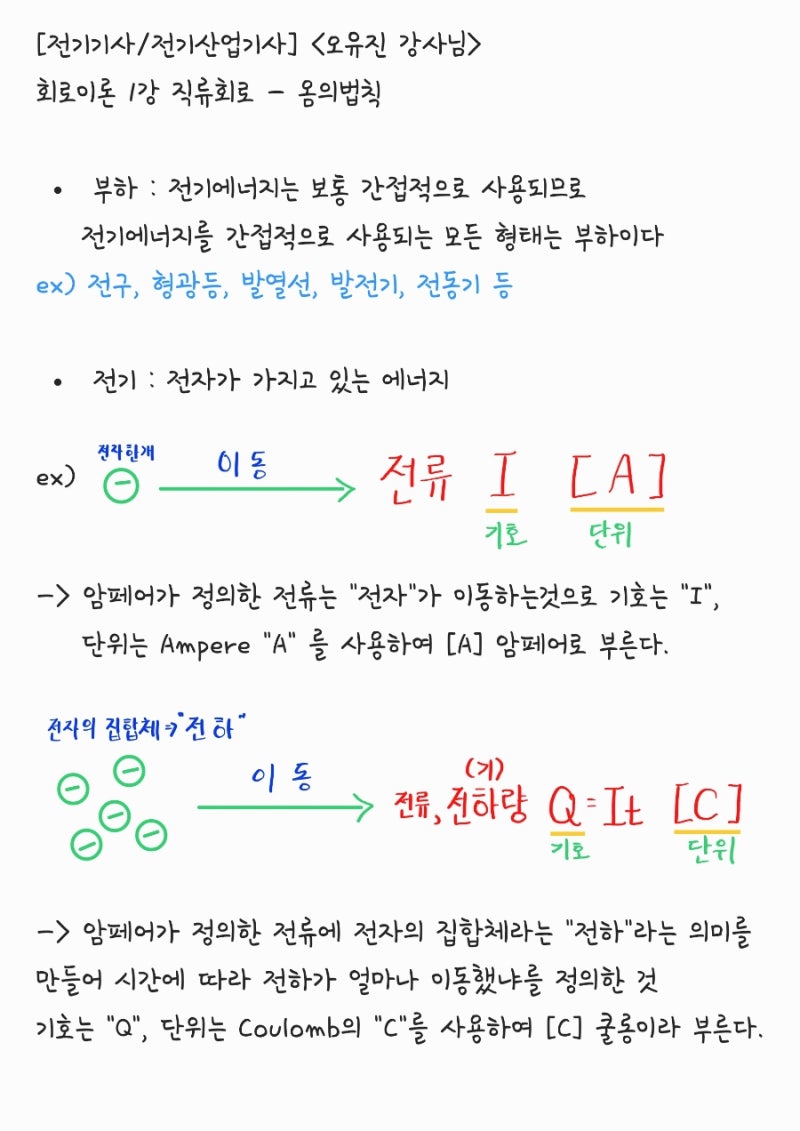 [전기기사/전기산업기사] <오유진 강사님>
회로이론 1강 직류회로 - 옴의법칙
• 부하 : 전기에너지는 보통 간접적으로 사용되므로
전기에너지를 간접적으로 사용되는 모든 형태는 부하이다
ex) 전구, 형광등, 발열선, 발전기, 전동기 등
• 전기 : 전자가 가지고 있는 에너지
전자한개
ex) ⊖ 이동 → 전류 I [A]
기호 단위
-> 암페어가 정의한 전류는 "전자"가 이동하는것으로 기호는 "I",
단위는 Ampere "A" 를 사용하여 [A] 암페어로 부른다.
전자의 집합체⇒"전하"
이동 → (기)
전류, 전하량 Q=It [C]
기호 단위
-> 암페어가 정의한 전류에 전자의 집합체라는 "전하"라는 의미를
만들어 시간에 따라 전하가 얼마나 이동했냐를 정의한 것
기호는 "Q", 단위는 Coulomb의 "C"를 사용하여 [C] 쿨롱이라 부른다.